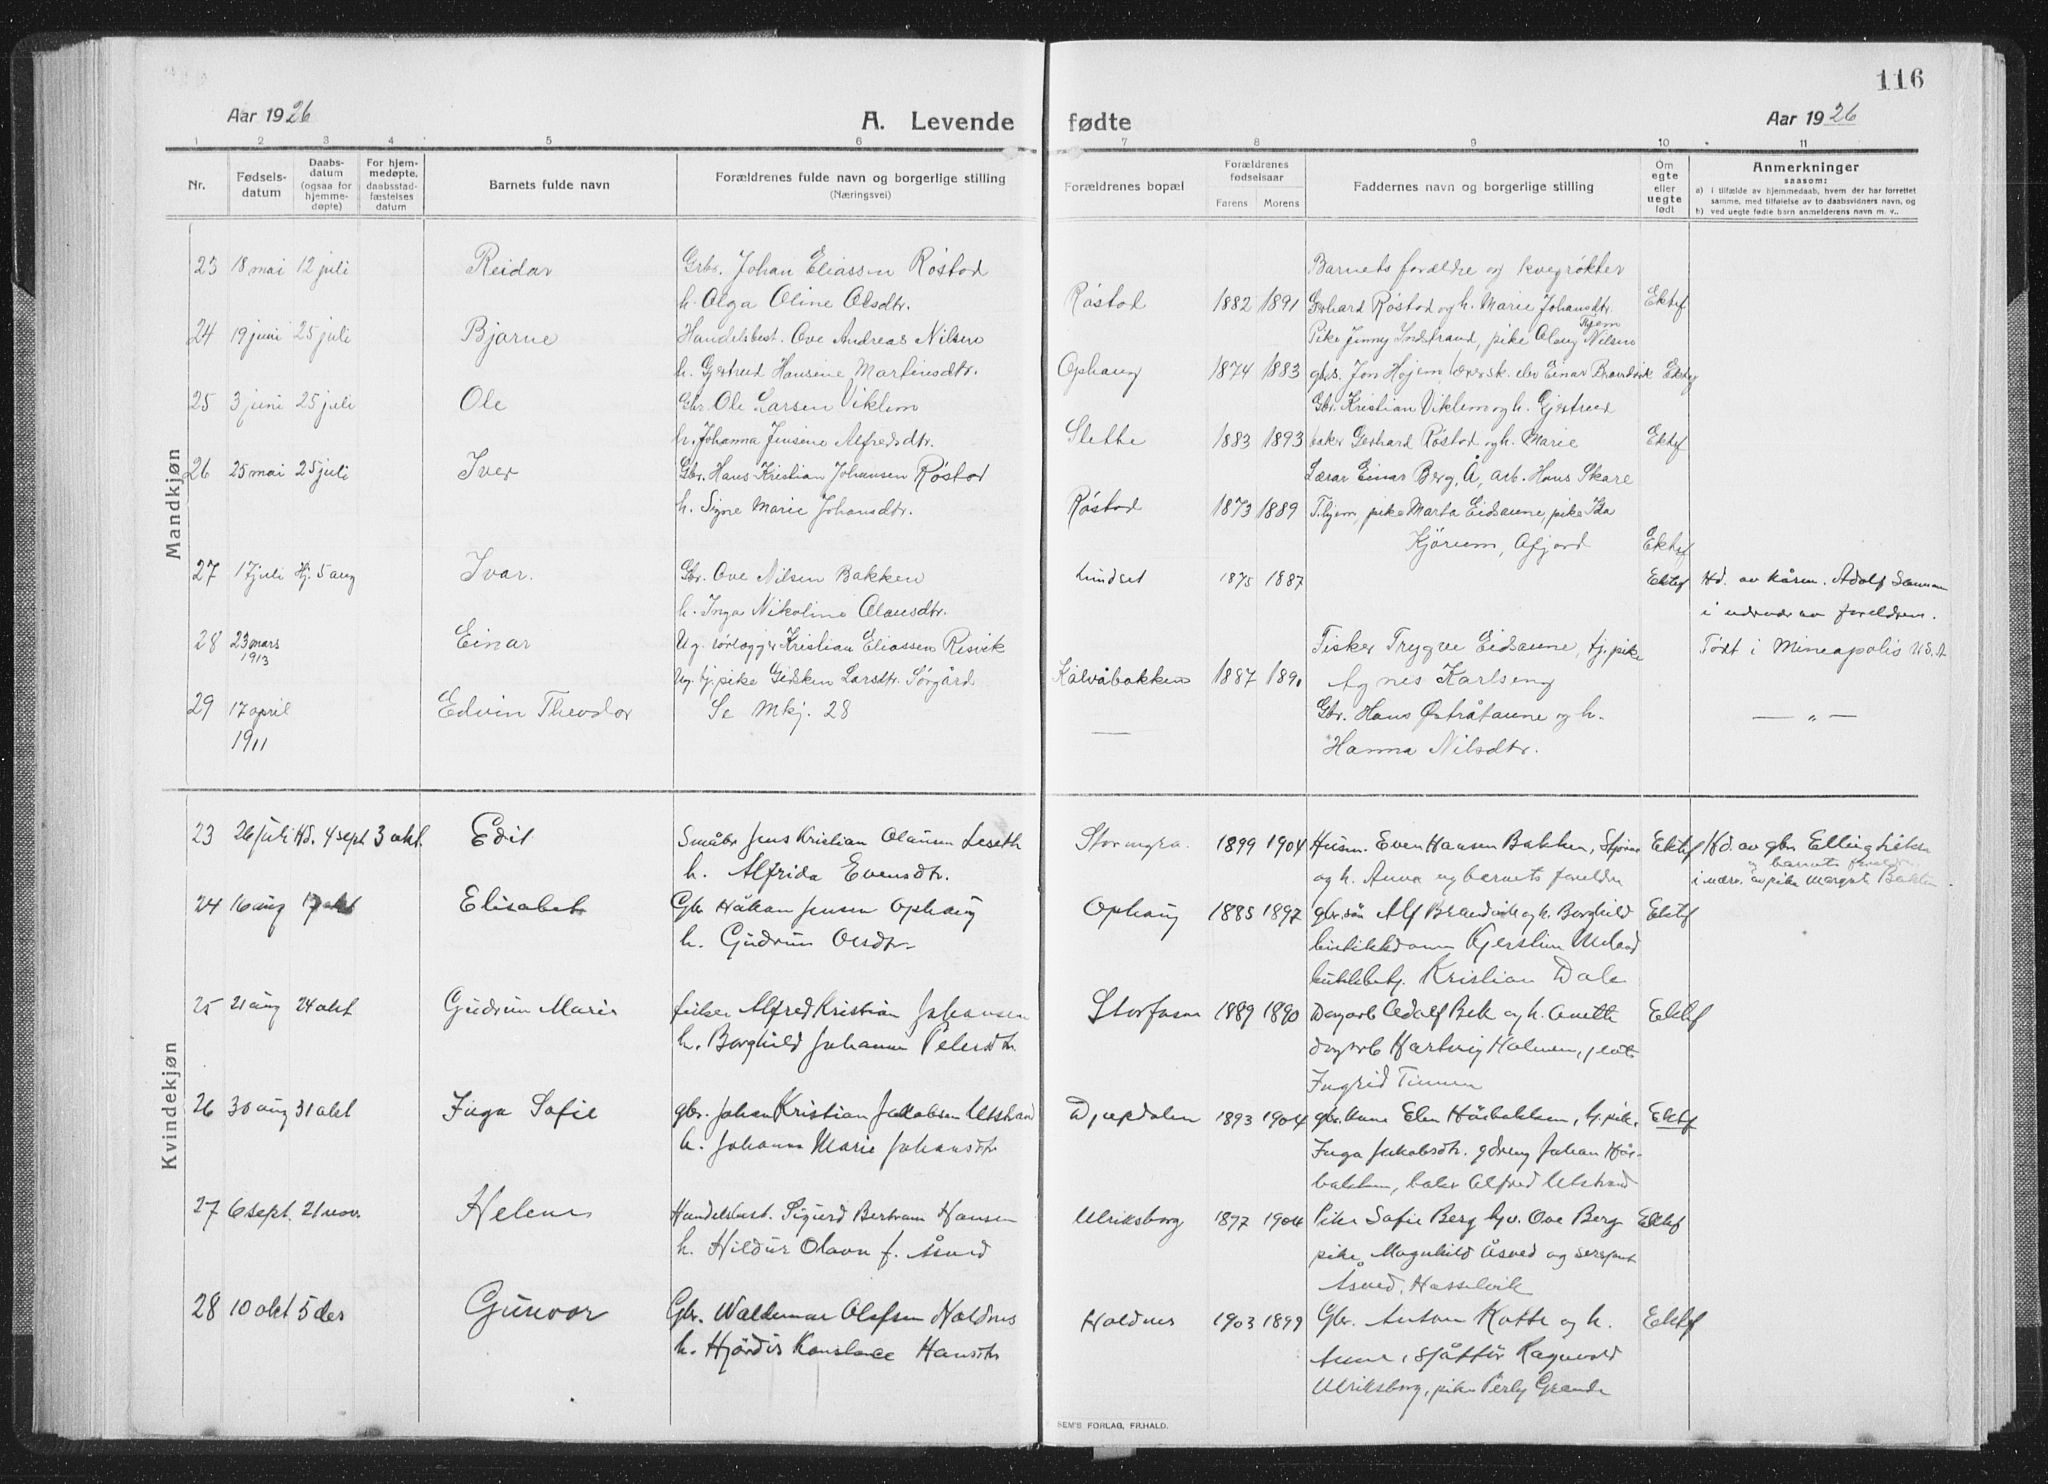 116
Aar 1926
A. Levende fødte
Aar 1926
1 2 3 4 5 6 7 8 9 10 11
Nr.
Fødsels-
datum
Daabs-
datum
(ogsaa for
hjemme-
døpte)
For hjem-
medøpte,
daabsstad-
fæstelses
datum
Barnets fulde navn
Forældrenes fulde navn og borgerlige stilling
(Næringsvei)
Forældrenes bopæl
Forældrenes
fødselsaar
Farens Morens
Faddernes navn og borgerlige stilling
Om
egte
eller
uegte
født
Anmerkninger
saasom:
a) i tilfælde av hjemmedaab, hvem der har forrettet
samme, med tilføielse av to daabsvidners navn, og
b) ved uegte fødte barn anmelderens navn m. v.
Mandkjøn
23 18 mai 12 juli Reidar Grbr. Johan Eliassen Røstad Barnets forældre og kvegrøkter
h. Olga Oline Olsdtr. Røstad 1882 1891 Gerhard Røstad og h. Marie Johansdtr. Ektef
24 19 juni 25 juli Bjarne Handelsbest. Ove Andreas Nilsen Pike Jinny Indstrand, pike Olaug Nilsen
h. Gjertrud Hansine Martinsdtr. Ophaug 1874 1883 gbs. Jon Hojem, elev Einar Brandvik Ektef
25 3 juni 25 juli Ole Gbr. Ole Larsen Viklem Gbr. Kristian Viklem og h. Gjertrud
h. Johanna Jensine Alfredsdtr. Slette 1883 1893 baker Gerhard Røstad og h. Marie Ektef
26 25 mai 25 juli Iver Gbr. Hans Kristian Johansen Røstad Lærar Einar Berg, Å, arb. Hans Skare
h. Signe Marie Johansdtr. Røstad 1873 1889 Thjem, pike Marta Eidsaune, pike Ida
Kjørum, Afjord Ektef
27 17 juli Hj. 5 aug Ivar. Gbr. Ove Nilsen Bakken Lindset 1875 1887 Ektef Hd. av Adolf
h. Inga Nikoline Olausdtr. i nærvær av foreldren.
28 23 mars Einar Ug. rørlegger Kristian Eliassen Risvik Fisker Trygve Eidsaune, tj. pike Født i Mineapolis U.S.A
1913 Ug. tj. pike Gidsken Larsdtr. Sørgård Kalvåbakken 1887 1890 Agnes Karlseng
29 17 april Edvin Theodor Se Mkj. 28 Gbr. Hans Østråtaune og h. — „ —
1911 — Hanna Nilsdtr.
Kvindekjøn
23 26 juli Hd. 4 sept 3 okt. Edit Småbr Jens Kristian Olausen Leseth Stormyra. 1899 1904 Husm. Even Hansen Bakken, Ektef Hd. av gbr. Elling
h. Alfrida Evensdtr. og h. Anna og barnets foreldre i nærv. av pike Margit Bakken
24 16 aug Elisabet Gbr Håkon Jensen Ophaug Ophaug 1885 1897 gbr. søn Alf Brandvik og h. Borghild Ektef
h. Gudrun Olsdtr. butikkdame Kjerstine
Kristian Dale
25 21 aug 24 okt Gudrun Marie fisker Alfred Kristian Johansen Storfosen 1889 1890 Dagarb Adolf Bek og h. Anette Ektef
h. Borghild Johanna Petersdtr. dagarb Hartvig Holmen, pike
Ingrid
26 30 aug 31 okt Inga Sofie gbr. Johan Kristian Jakobsen Utstrand Djupdalen 1893 1904 gbr. kone Elen Håsbakken, tj. pike, Ektef
h. Johanna Marie Johansdtr Inga Jakobsdtr. gdreng Johan Hås-
bakken, baker Alfred Utstrand
27 6 sept. 21 nov. Helene Handelsbest. Sigurd Bertram Hansen Ulriksborg 1897 1904 Pike Sofie Berg hjv. Ove Berg Ektef
h. Hildur Olavn f. Åsved pike Magnhild Åsved og sersjant
Åsved, Hasselvik
28 10 okt 5 des Gunvor Gbr. Waldemar Olafsen Holdnes Holdnes 1903 1899 Gbr. Anton Kotte og h. Ektef
h. Hjørdis Konstance Hansdtr Anna, sjåffør Ragnvald
Ulriksborg, pike Perly Grande
SEM'S FORLAG, FR.HALD.